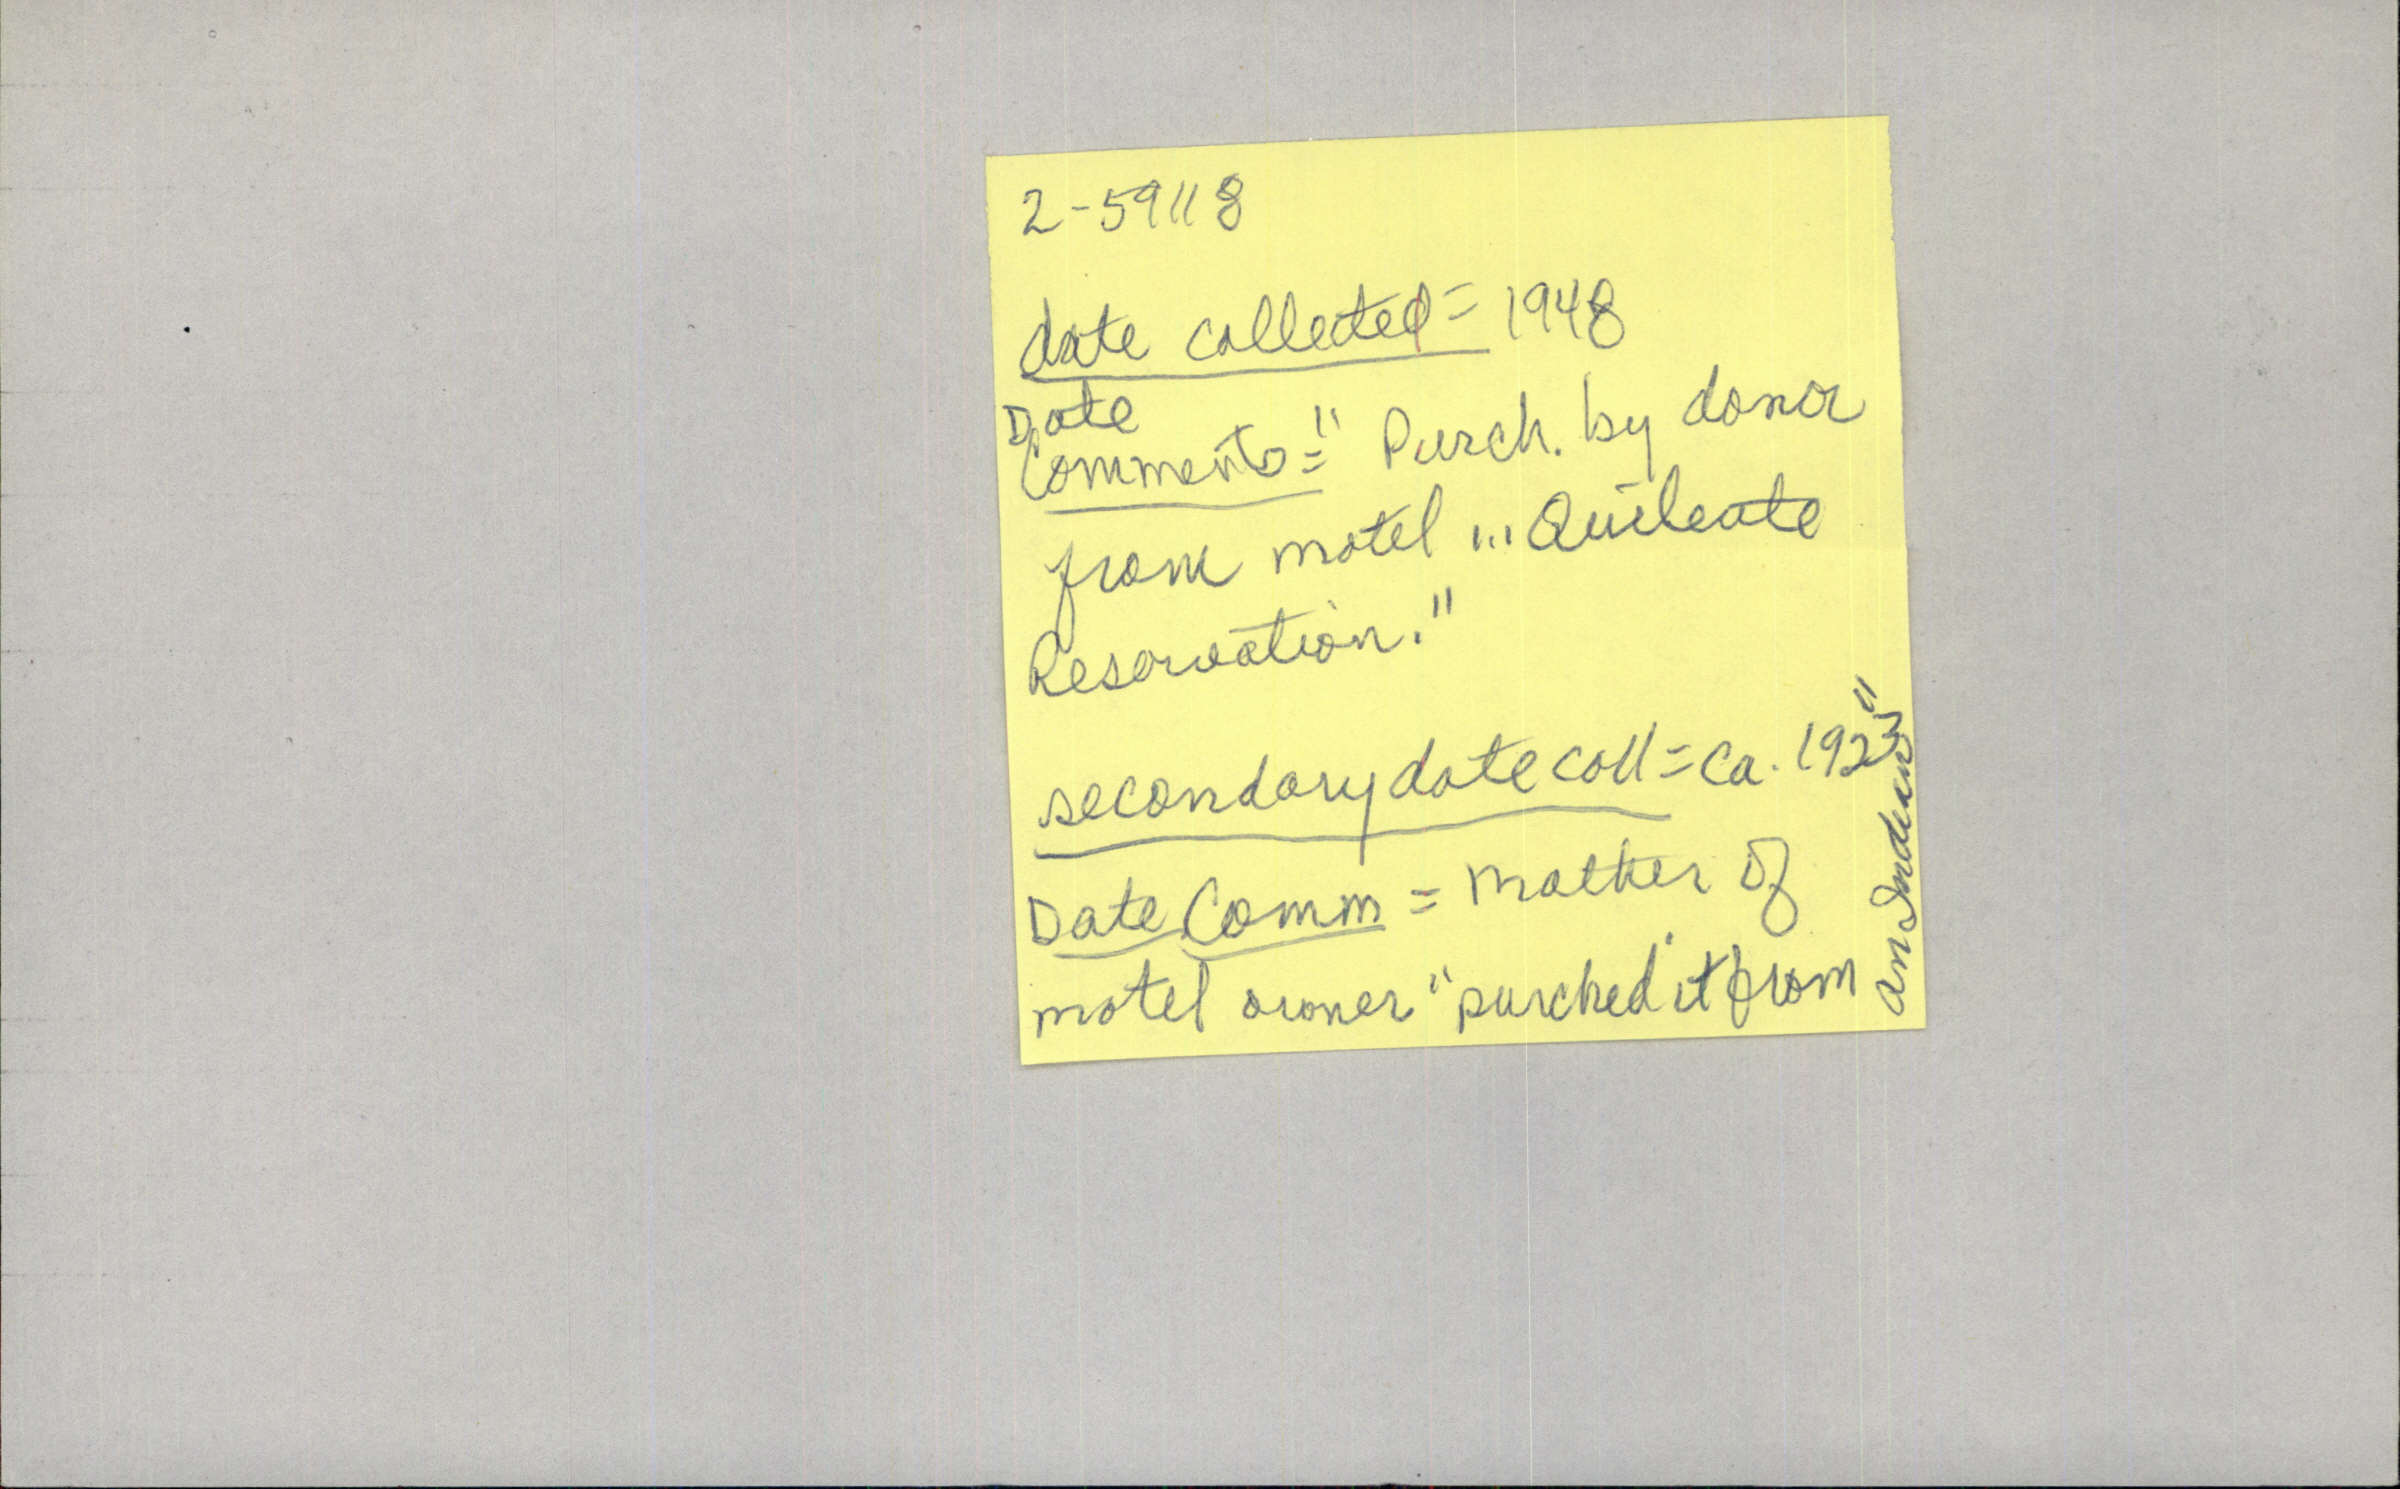 2-59118
date collected = 1948
Date
Comments = " Purch. by donor
from motel ... Quileate
Reservation."
secondary date coll = ca. 1923
Date Comm = mother of
motel owner "purched it from
an Indian"